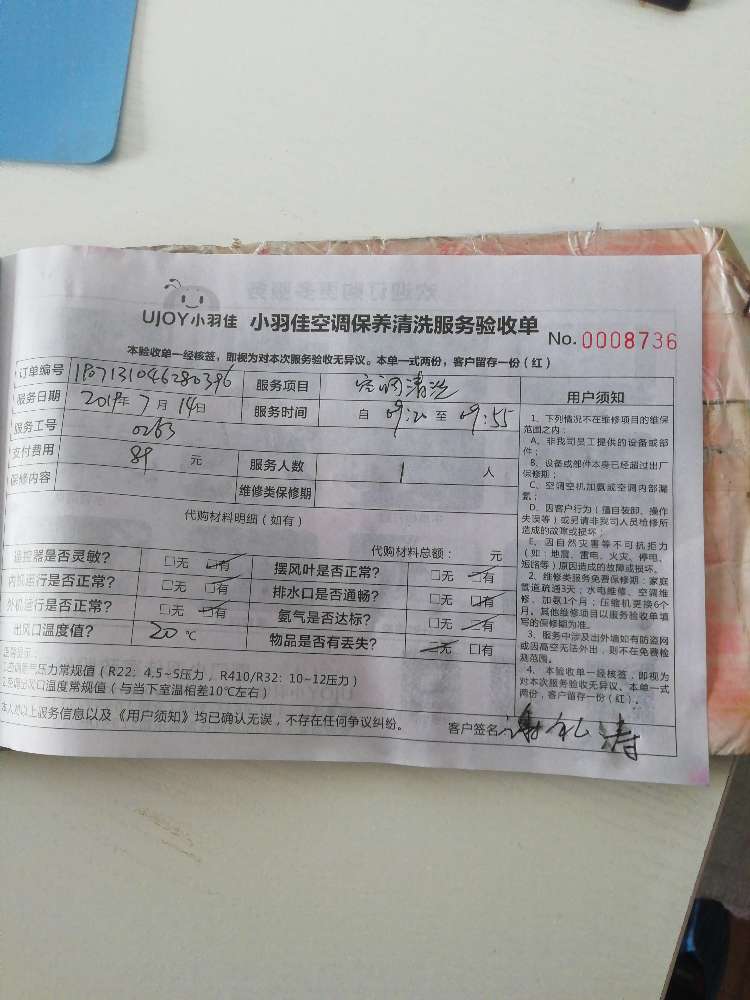 UJOY小羽佳 小羽佳空调保养清洗服务验收单 No. 0008736
本验收单一经核签，即视为对本次服务验收无异议。本单一式两份，客户留存一份（红）
订单编号 1807131046280396 服务项目 空调清洗
服务日期 2018年7月14日 服务时间 自 至 09:55
服务工号 0263
支付费用 89 元 服务人数 1 人
保修内容 维修类保修期
代购材料明细（如有）
代购材料总额： 元
遥控器是否灵敏？ 口无 口有 摆风叶是否正常？ 口无 口有
内机运行是否正常？ 口无 口有 排水口是否通畅？ 口无 口有
外机运行是否正常？ 口无 口有 氨气是否达标？ 口无 口有
出风口温度值？ 20 ℃ 物品是否有丢失？ 口无 口有
压力常规值（R22：4.5~5压力，R410/R32：10~12压力）
口温度常规值（与当下室温相差10℃左右）
本人对以上服务信息以及《用户须知》均已确认无误，不存在任何争议纠纷。 客户签名 谢礼涛
用户须知
1、下列情况不在维修项目的维保
范围之内：
A、非我司员工提供的设备或部
件；
B、设备或部件本身已经超过出厂
保修期；
C、空调空机加氨或空调内部漏
氨；
D、因客户行为（擅自装卸、操作
失误等）或另请非我司人员检修所
造成的故障或损坏；
E、因自然灾害等不可抗拒力
（如：地震、雷电、火灾、停电、
短路等）原因造成的故障或损坏。
2、维修类服务免费保修期：家庭
管道疏通3天；水电维修、空调维
修、加氨1个月；压缩机更换6个
月，其他维修项目以服务验收单填
写的保修期为准。
3、服务中涉及出外墙如有防盗网
或因高空无法外出，则不在免费检
测范围。
4、本验收单一经核签，即视为
对本次服务验收无异议。本单一式
两份，客户留存一份（红）。